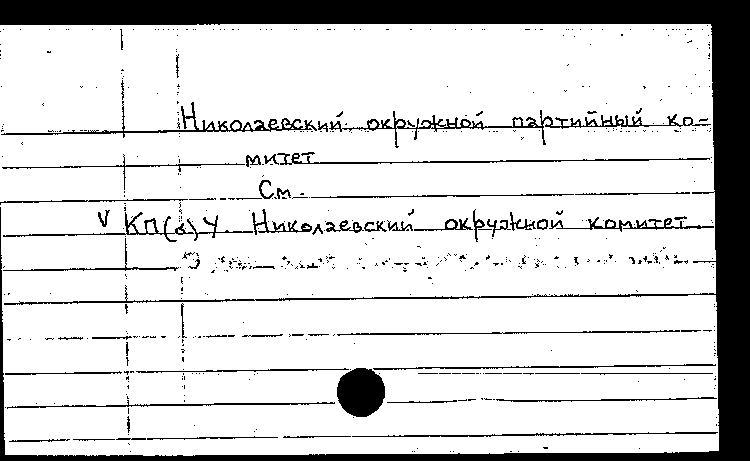 Николаевский окружной партийный ко=
митет
См.
V КП(б)У. Николаевский окружной комитет.